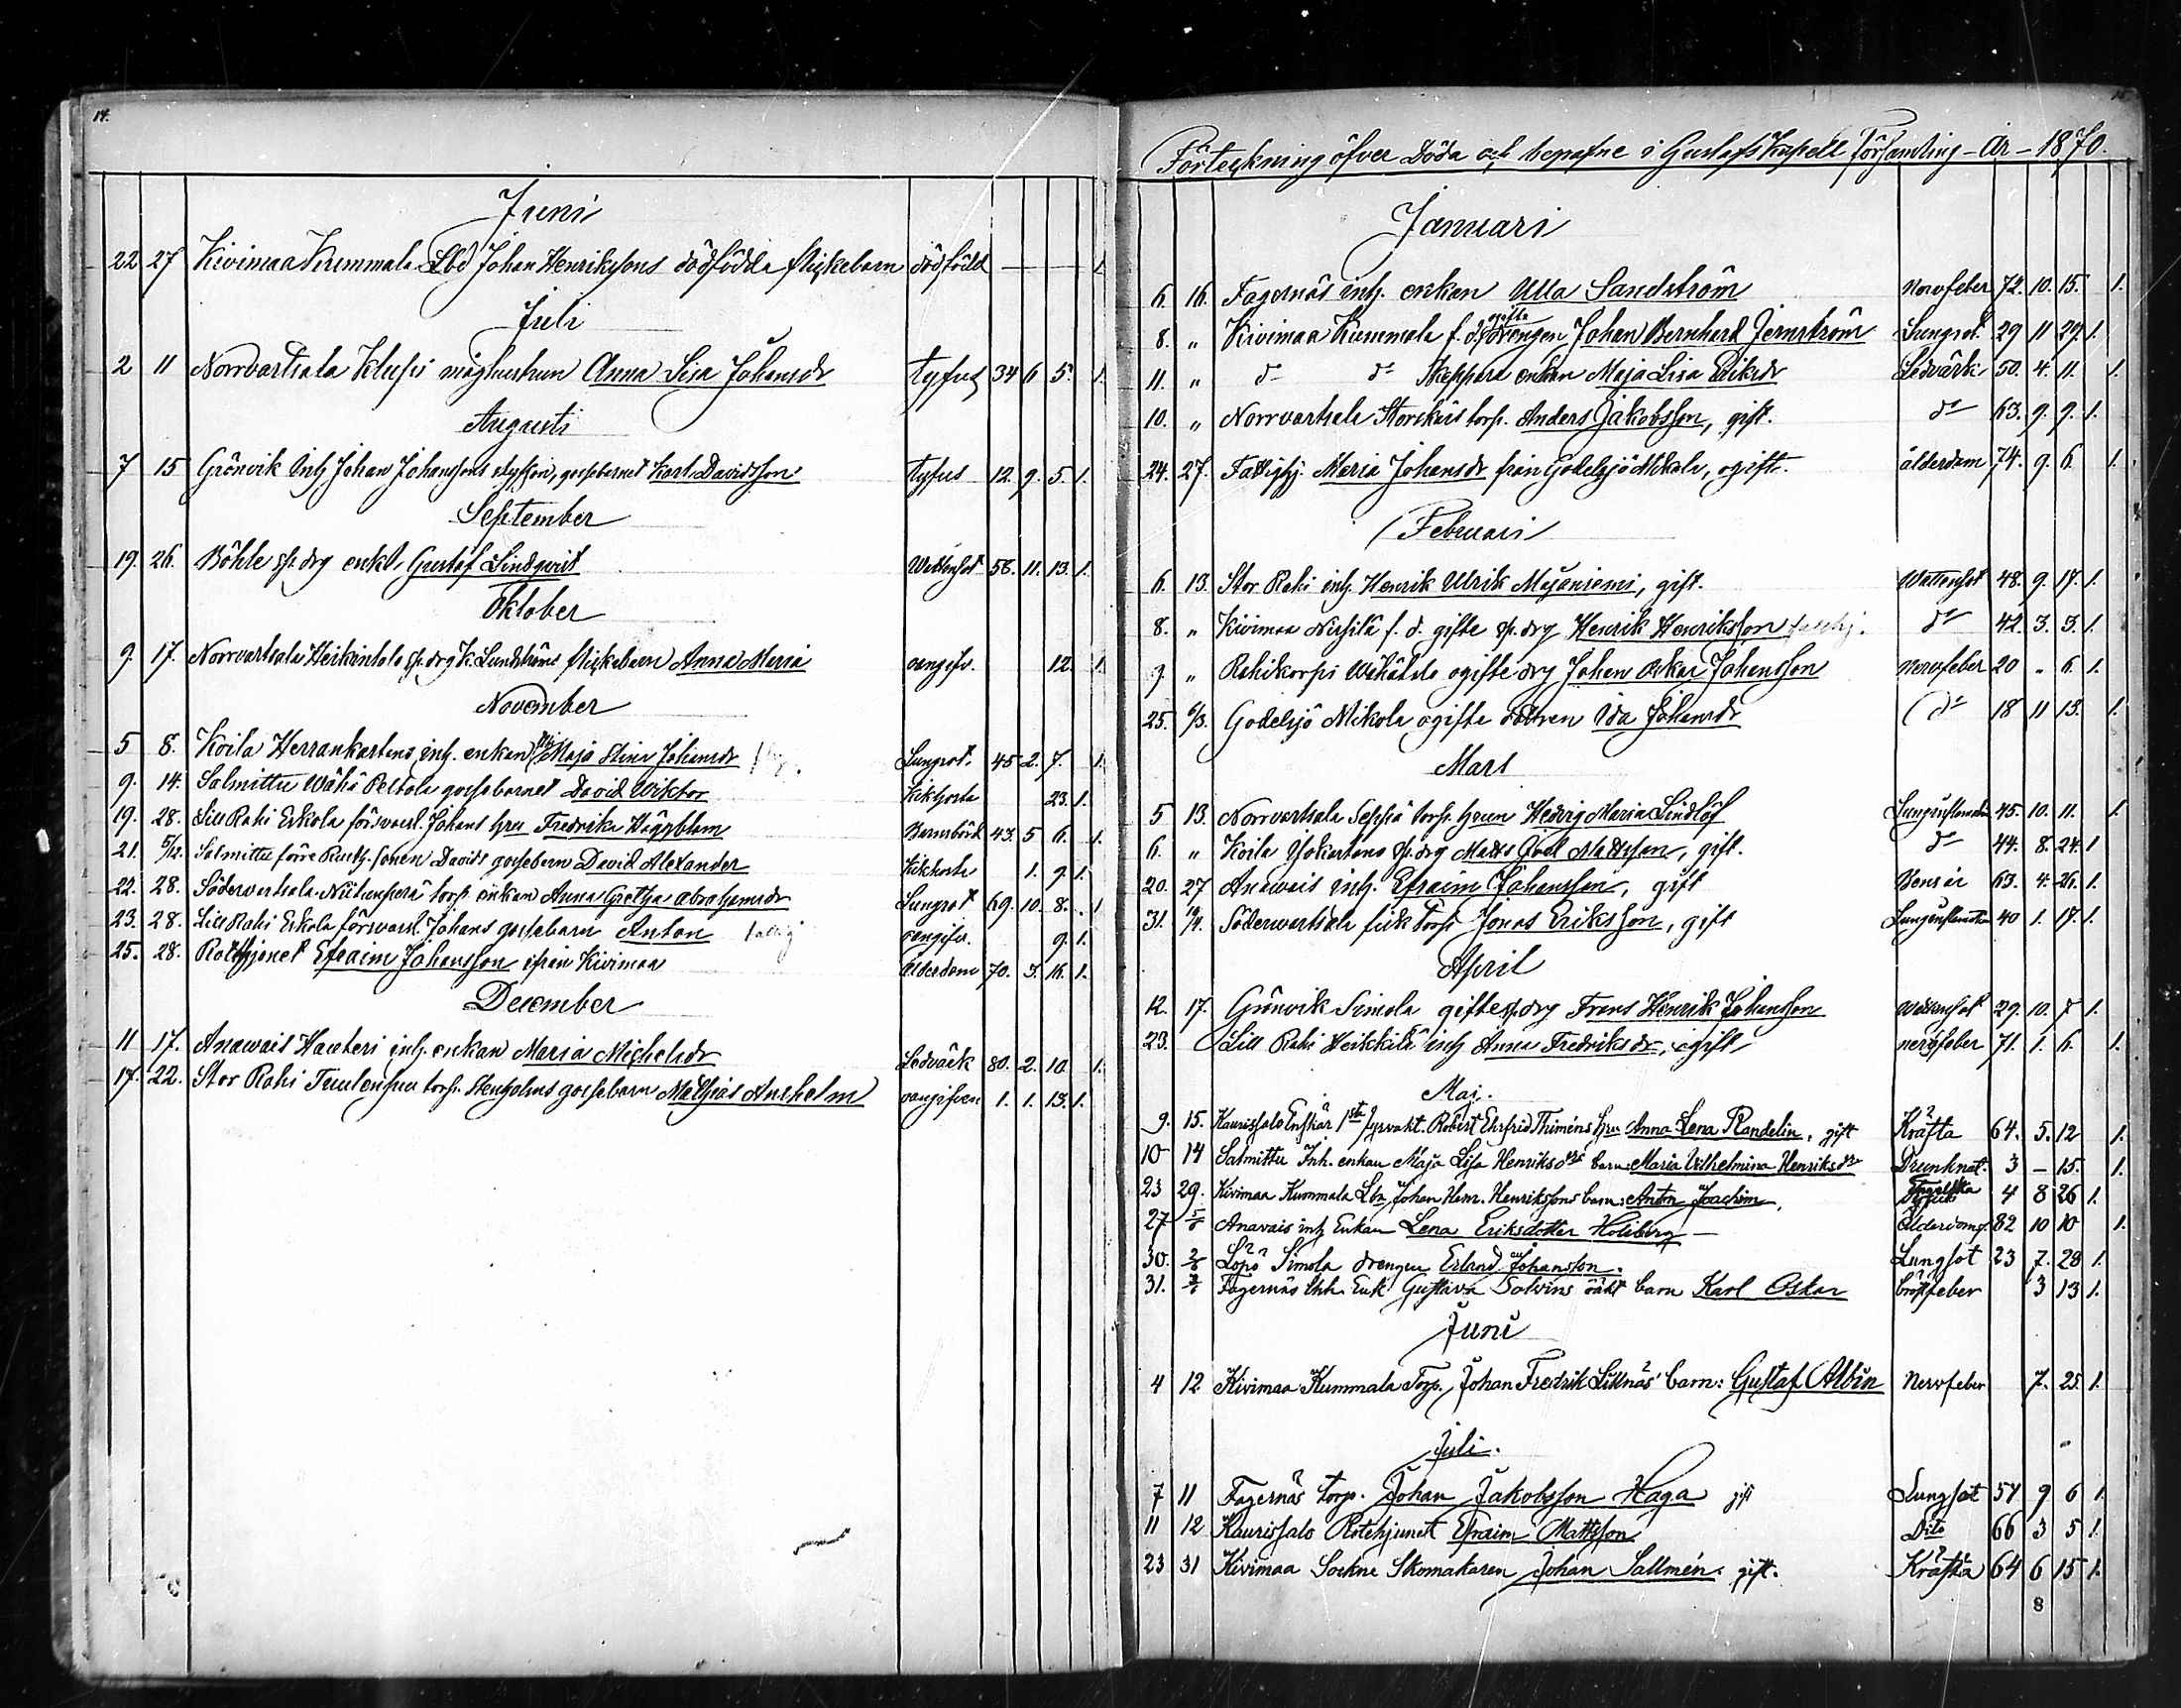 14.
Juni
22 27 Kivimaa Kummala Lbd Johan Henrikssons dödfödda flickebarn dödfödd — 1.
Juli
2 11 Norrvartsala Klupi måghustrun Anna Lisa Johansdr tyfus 34 6 5. 1.
Augusti
7 15 Grönvik Inh Johan Johanssons styfson, gossebarnet Karl Davidsson tyfus 12. 9. 5. 1.
September
19. 26. Böhle sp. drg enkl. Gustaf Lindqvist Wattensot 56. 11. 13. 1.
Oktober
9. 17. Norrvartsala Heikintalo sp. drg K. Lundströms flickebarn Anna Maria oangifv. 12. 1.
November
5 8. Koila Herrankartano inh. enkan Maja Stina Johansdr Lungsot. 45 2. 7. 1.
9. 14. Salmittu Wähä Peltola gossebarnet David Wiktor Kikhosta 23. 1.
19. 28. Lill Rahi Eskola försvarsl. Johans hru Fredrika Häggblom Barnsbörd 43. 5 6. 1.
21. 5/12. Salmittu förre sonen Davids gossebarn David Alexander Kikhosta 1. 9. 1.
22. 28. Södervartsala torp. enkan Anna Gretha Abrahamsdr Lungsot 69. 10. 8. 1
23. 28. Lill Rahi Eskola försvarsl. Johans gossebarn Anton oangifv. 9. 1.
25. 28. Rotehjonet Efraim Johansson ifrån Kivimaa ålderdom 70. 3. 16. 1.
December
11 17. Anawais Haveteri inh. enkan Maria Michelsdr Ledvärk 80. 2. 10 1.
17. 22. Stor Rahi torp. Stenholms gossebarn Mathias Anshelm oangifven 1. 1. 13. 1.
15.
Förteckning öfver Döda och begrafne i Gustafs Kapell Församling - År - 1870.
Januari
6. 16. Fagernäs inh. enkan Ulla Sandström Nervfeber 72. 10. 15. 1.
8. " Kivimaa Kummala f. d. gifte drengen Johan Bernhard Jernström Lungsot. 29 11 29. 1.
11. " do do Skeppara enkan Maja Lisa Eriksdr Ledvärk 50. 4. 11. 1.
10. " Norrvartsala Storskärs torp. Anders Jakobsson, gift. do 63. 9. 9. 1.
24. 27. Fattighj. Maria Johansdr från Godelsjö Mikola, ogift. ålderdom 74. 9. 6. 1.
Februari
6. 13. Stor Rahi inh. Henrik Ulrik Majaniemi, gift. Wattensot 48. 9. 17. 1.
8. " Kivimaa Nissilä f. d. gifte sp. drg Henrik Henriksson do 42. 3. 3. 1.
9. " Rahikorpi Wähätalo ogifte drg Johan Oskar Johansson Nervfeber 20 " 6. 1.
25. 6/3. Godelsjö Mikola ogifta dottren Ida Johansdr do 18 11 13. 1.
Mars
5 13. Norrvartsala Seppä torp. hrun Hedvig Maria Lindlöf Lunginflamation 45. 10. 11. 1.
6. " Koila Isokartano sp. drg Matts Joel Mattsson, gift. do 44. 8. 24. 1
20. 27 Anawais inh. Efraim Johansson, gift Bensår 63. 4. 26. 1.
31. 10/4. Södervartsala torp Jonas Eriksson, gift Lunginflamation 40 1. 17. 1.
April
12. 17. Grönvik Simola gifte sp. drg Frans Henrik Johansson Wattensot 29. 10. 7 1.
23. Lill Rahi Heikkilä inh Anna Fredriksdr, ogift nervfeber 71. 1. 6. 1.
Maj.
9. 15. Kaurissalo Enskär 1sta fyrvakt. Robert Ehrfrid Thiméns hru Anna Lena Randelin, gift Kräfta 64. 5. 12 1.
10 14 Salmittu Inh. enkan Maja Lisa Henriksdrs barn: Maria Vilhelmina Henriksdr Drunknat. 3 – 15. 1.
23 29. Kivimaa Kummala Lbn Johan Henr. Henrikssons barn: Anton Joachim Engelska 4 8 26 1.
27 5/6 Anavais inh Enkan Lena Eriksdotter Holsberg — ålderdomsf. 82 10 10 1.
30. 2/6 Löpö Simola drengen Erland Johansson. Lungsot 23 7. 28 1.
31. 2/6 Fagernäs Inh. Enk Gustava Solvins oäkt barn Karl Oskar bröstfeber 3 13 1.
Juni
4 12 Kivimaa Kummala Torp. Johan Fredrik Lillnäs' barn: Gustaf Albin Nervfeber 7. 25. 1.
Juli.
7 11 Fagernäs torp. Johan Jakobsson Haga gift Lungsot 57 9 6 1.
11 12 Kaurissalo Rotehjonet Efraim Mattsson Dito 66 3 5 1.
23 31 Kivimaa Sockne Skomakaren Johan Sallmén. gift. Kräfta 64 6 15 1.
8